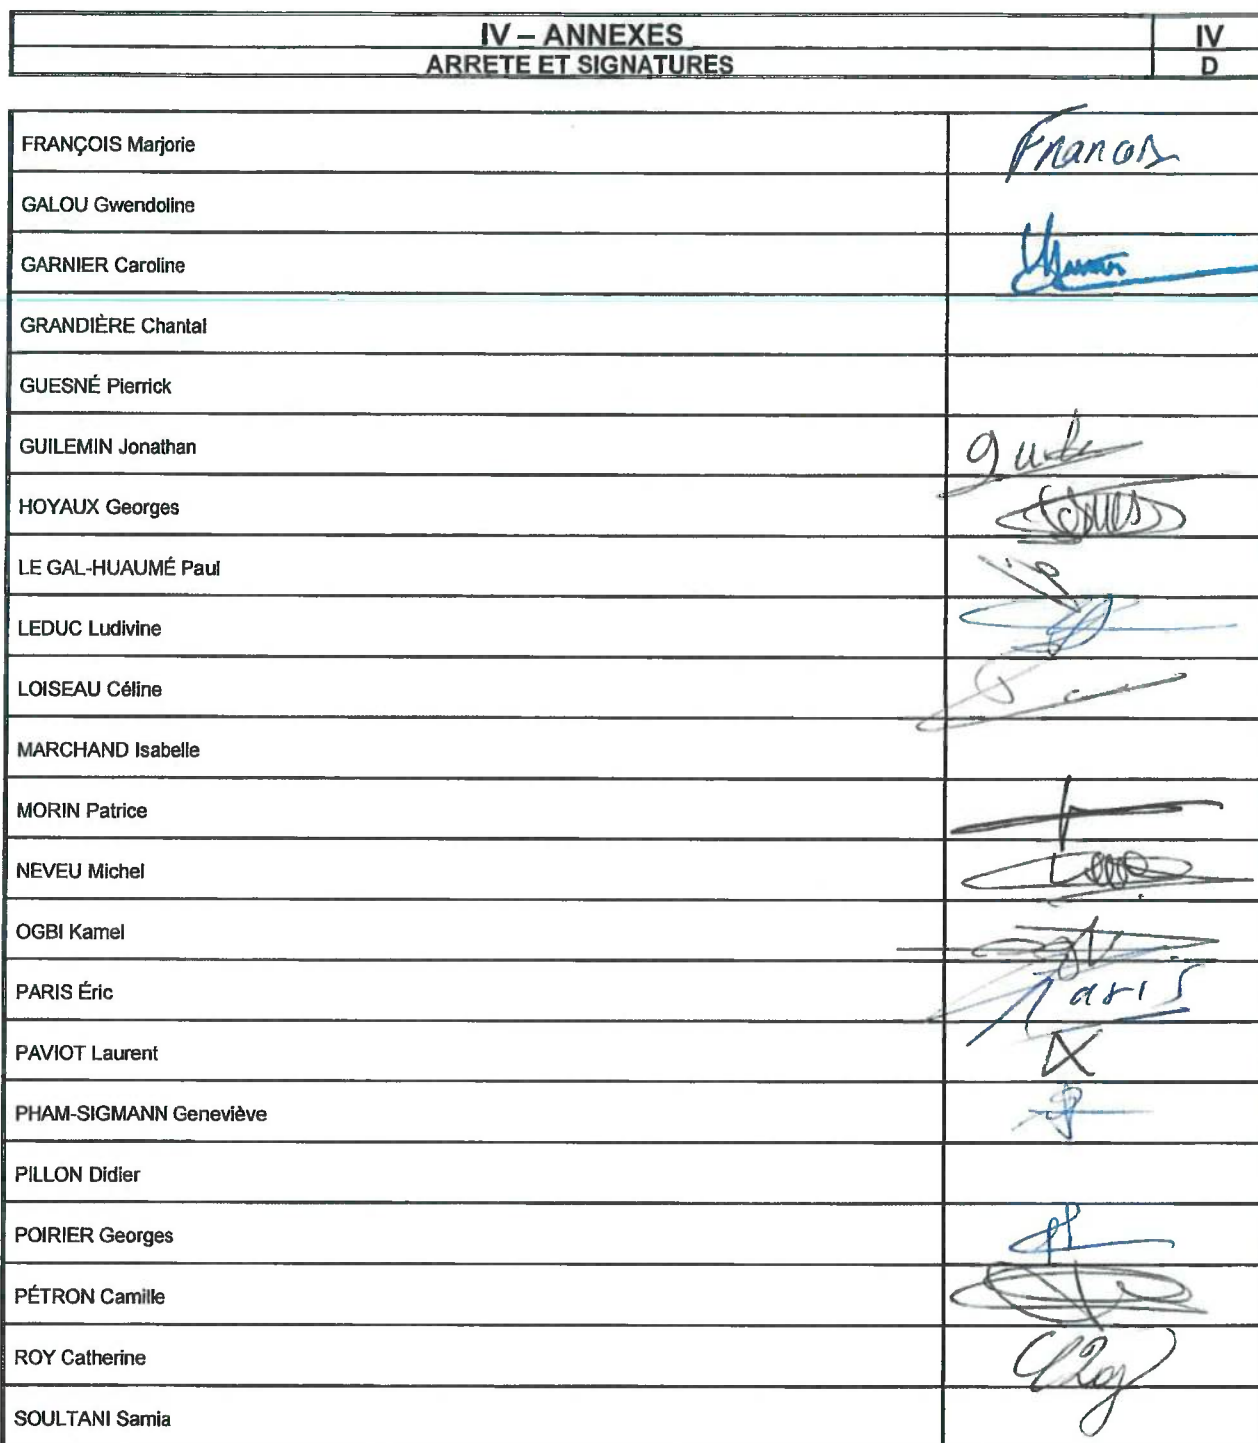 IV – ANNEXES IV
ARRETE ET SIGNATURES D
FRANÇOIS Marjorie Francois
GALOU Gwendoline
GARNIER Caroline
GRANDIÈRE Chantal
GUESNÉ Pierrick
GUILEMIN Jonathan
HOYAUX Georges
LE GAL-HUAUMÉ Paul
LEDUC Ludivine
LOISEAU Céline
MARCHAND Isabelle
MORIN Patrice
NEVEU Michel
OGBI Kamel
PARIS Éric Paris
PAVIOT Laurent
PHAM-SIGMANN Geneviève
PILLON Didier
POIRIER Georges
PÉTRON Camille
ROY Catherine CRoy
SOULTANI Samia